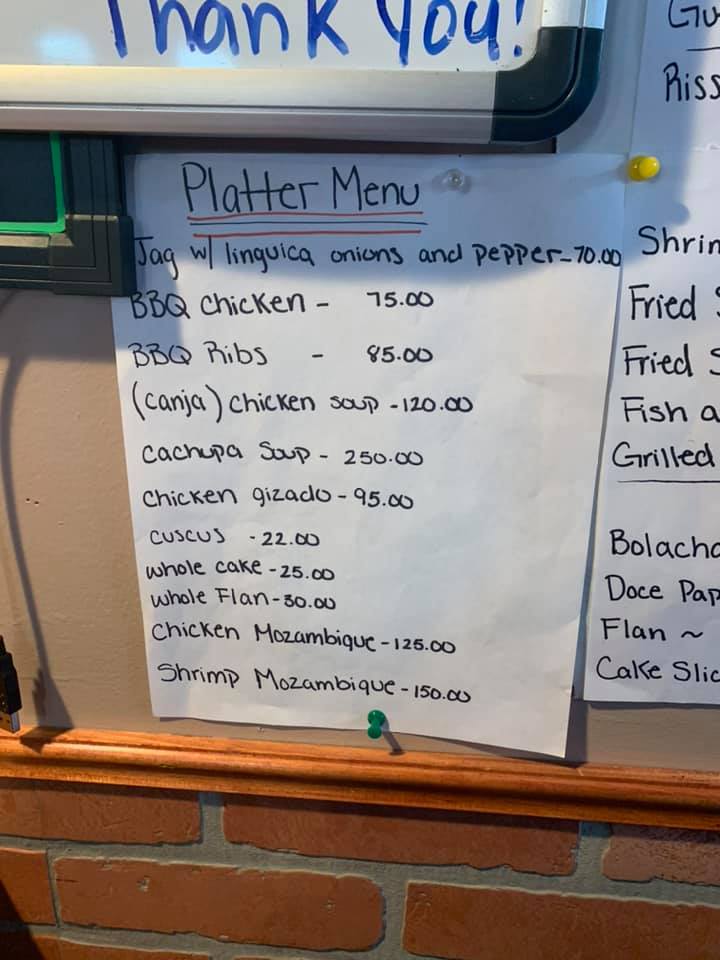 Thank You!
Platter Menu
Jag w/ linguica onions and pepper-70.00
BBQ chicken - 75.00
BBQ Ribs - 85.00
(canja) chicken soup -120.00
cachupa Soup - 250.00
chicken gizado-95.00
cuscus -22.00
whole cake-25.00
whole Flan-30.00
Chicken Mozambique-125.00
Shrimp Mozambique-150.00
Fried
Fried
Fish
Grilled
Flan ~
Cake